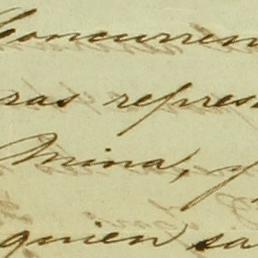 Concurren
ras repres
Mina, y
quien sa